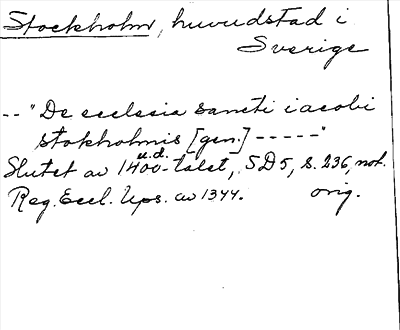 Stockholm, huvudstad i
Sverige
-- "De ecclesia sancti iacobi
stokholmis [gen.] -----"
u.d.
Slutet av 1400-talet, SD5, s. 236, not.
Reg. Eccl. Ups. av 1344. orig.